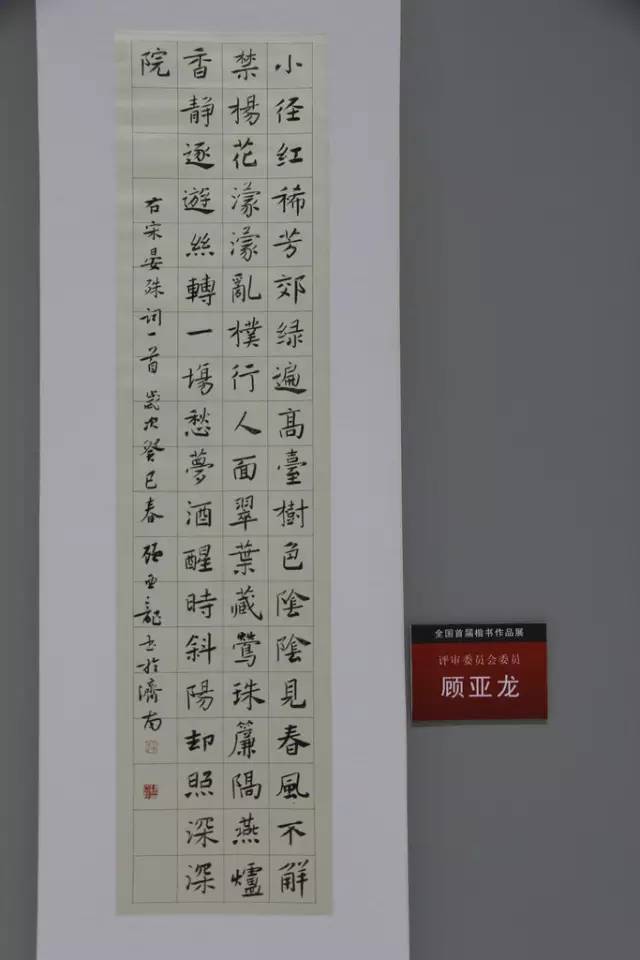 小径红稀芳郊绿遍高臺樹色陰陰見春風不解
禁楊花濛濛亂樸行人面翠葉藏鶯珠簾隔燕爐
香靜逐遊絲轉一塲愁夢酒醒時斜陽却照深深
院
右宋晏殊词一首 歲次癸巳春 顾亚龍书於濟南
全国首届楷书作品展
评审委员会委员
顾亚龙